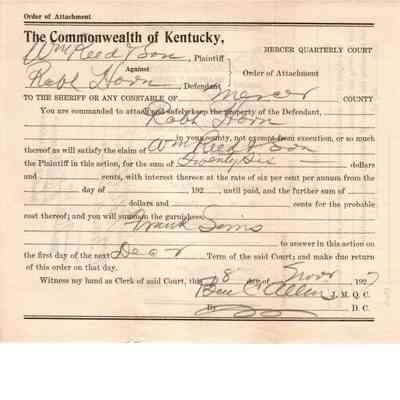 Order of Attachment
The Commonwealth of Kentucky,
MERCER QUARTERLY COURT
Wm Reed & Son, Plaintiff
Against
Order of Attachment
Robt Horn, Defendant
TO THE SHERIFF OR ANY CONSTABLE OF Mercer COUNTY
You are commanded to attach and safely keep the property of the Defendant,
Robt Horn
in your county, not exempt from execution, or so much
thereof as will satisfy the claim of Wm Reed & Son
the Plaintiff in this action, for the sum of Twenty Six dollars
and cents, with interest thereon at the rate of six per cent per annum from the
day of 192 until paid, and the further sum of
dollars and cents for the probable
cost thereof; and you will summon the garnishees
Frank Sims
to answer in this action on
the first day of the next Term of the said Court; and make due return
of this order on that day.
Witness my hand as Clerk of said Court, this 8 day of 192
Ben C Allin J. M. Q. C.
By D. C.